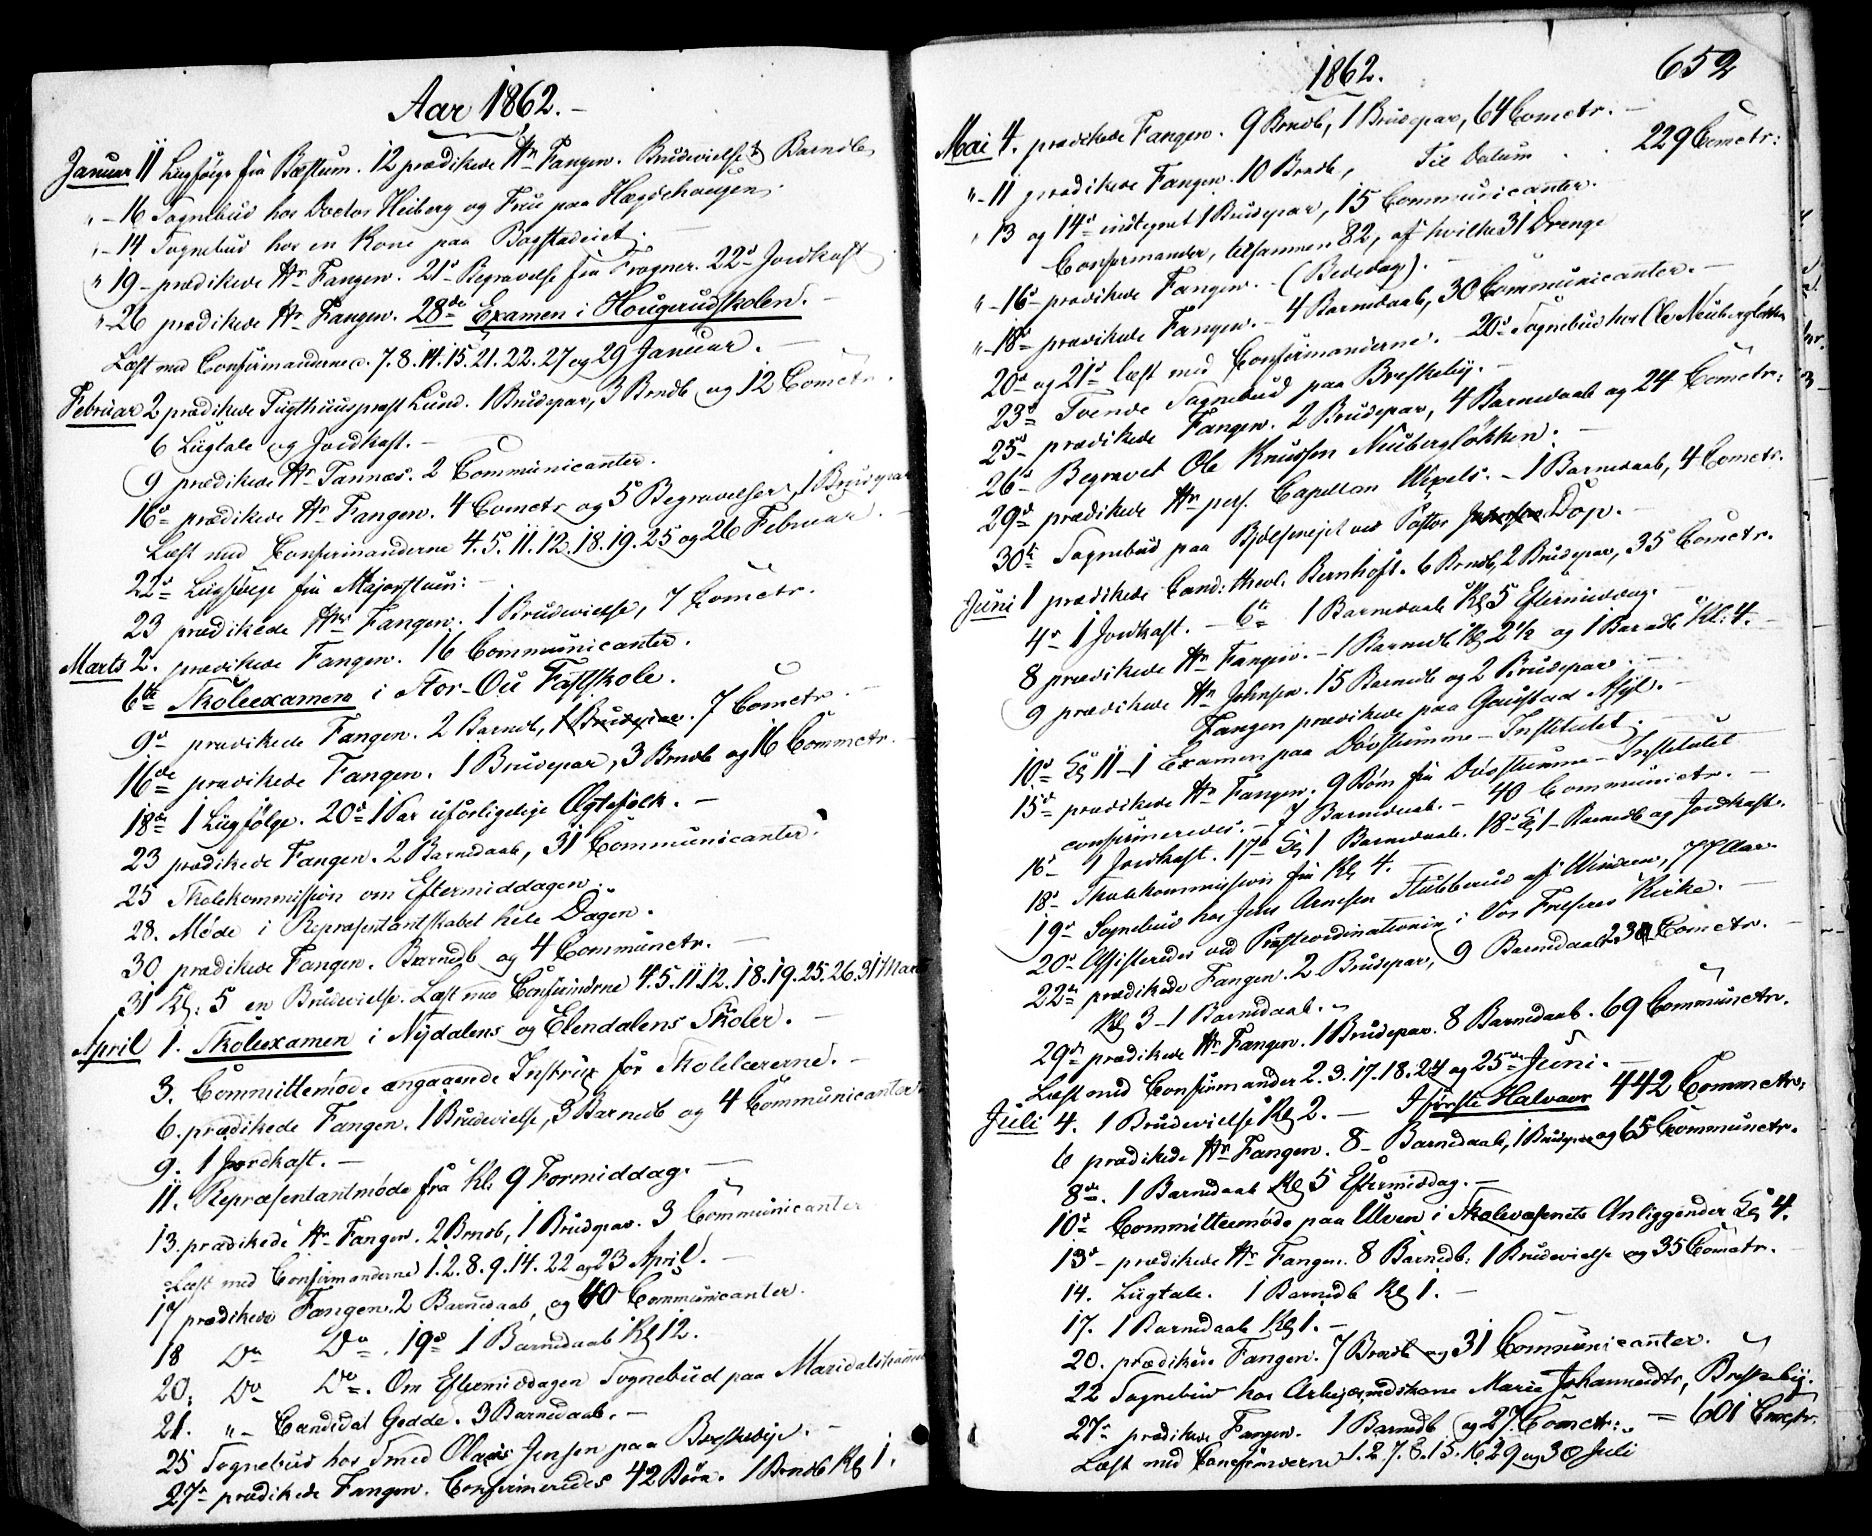 Aar 1862.-
Januar 11 Liigfølge fra Bæstum. 12 prædikede Hr Fangen. Brudevielse & Barndb
"-16 Sognebud hos Doctor Heiberg og Frue paa Hægdehaugen.
"-14 Sognebud hos en Kone paa Bogstadveiet.
"19- prædikede Hr Fangen. 21de Begravelse fra Frogner. 22de Jordkast
"-26 prædikede Hr Fangen. 28de Examen i Hougerudskolen.-
Læst med Confirmanderne d. 7. 8. 14. 15. 21. 22. 27 og 29 Januar.-
Februar 2 prædikede Tugthuuspræst Lund. 1 Brudepar, 3 Brndb og 12 Comctr.
6 Liigtale og Jordkast.-
9 prædikede Hr Tannæs. 2 Communicanter.
16de prædikede Hr Fangen. 4 Comctr og 5 Begravelser, 1 Brudepar
Læst med Confirmanderne 4. 5. 11. 12. 18. 19. 25 og 26 Februar.-
22de Liigfølge fra Majorstuen.
23 prædikede Hr Fangen. 1 Brudevielse, 7 Comctr.
Marts 2. prædikede Fangen. 16 Communicanter.
6te Skoleexamen i Stor-Øu Fastskole.
9de prædikede Fangen. 2 Barndb, 1 Brudepar. 7 Comctr.-
16de prædikede Fangen. 1 Brudepar, 3 Brndb og 16 Commctr.-
18de 1 Liigfølge. 20de 1 Par uforligelige Ægtefolk.-
23 prædikede Fangen. 2 Barnedaab, 31 Communicanter.
25 Skolekommission om Eftermiddagen.
28. Møde i Repræsentantskabet hele Dagen.
30 prædikede Fangen. Barnedb og 4 Communctr.-
31 Kl. 5 en Brudevielse. Læst med Confirmderne 4. 5. 11. 12. 18. 19. 25. 26. 31 Mar
April 1. Skoleexamen i Nydalens og Elendalens Skoler.-
3. Committemøde angaaende Instrux for Skolelærerne.-
6. prædikede Fangen. 1 Brudevielse, 3 Barnedb og 4 Communicanter
9. 1 Jordkast.-
11. Repræsentantmøde fra Kl. 9 Formiddag.-
13. prædikede Hr Fangen. 2 Brndb, 1 Brudepar. 3 Communicanter
Læst med Confirmanderne 1. 2. 8. 9. 14. 22 og 23 April.-
17 prædikede Fangen. 2 Barnedaab, og 40 Communicanter.
18 Do Do. 19de 1 Barnedaab Kl 12.
20. Do Do. Om Eftermiddagen Sognebud paa Maridalshammer
21. "- Candidat Gedde. 3 Barnedaab.-
25 Sognebud hos Smed Olaus Jensen paa Breskebye.-
27de prædikede Fangen. Confirmeredes 42 Børn. 1 Brndb Kl 1.
1862. 652
Mai 4. prædikede Fangen. 9 Brndb, 1 Brudepar, 64 Comctr.-
"-11 prædikede Fangen. 10 Brndb, Til Datum . . 229 Comctr:
"13 og 14de indtegnet 1 Brudepar, 15 Communicanter.
Confirmander, tilsammen 82, af hvilke 31 Drenge
"-16de prædikede Fangen.-(Bededag).-
"-18de prædikede Fangen.- 4 Barnedaab, 30 Communicanter.-
20de og 21de læst med Confirmanderne.- 20de Sognebud hos Ole Nubergløkken
23de Tvende Sognebud paa Breskeby.-
25de prædikede Fangen. 2 Brudepar, 4 Barnedaab og 24 Comctr:
26de Begravet Ole Knudsen Nubergløkken.-
29de prædikede Hr pers. Capellan Wexels.- 1 Barnedaab, 4 Comctr.
30te Sognebud paa ved Pastor Døp.-
Juni 1 prædikede Cand: theol. Bernhoft. 6 Brndb, 2 Brudepar, 35 Comctr.
4de 1 Jordkast.- 6te 1 Barnedaab Kl 5 Eftermiddag.
8 prædikede Hr Fangen.- 1 Barnedb Kl 2½ og 1 Barndb Kl. 4.-
9 prædikede Hr Johnsen. 15 Barnedb og 2 Brudepar.-
Fangen prædikede paa Gaustad Asyl.-
10de Kl 11-1 Examen paa Døvstumme-Institutet.
15de prædikede Hr Fangen. 9 Børn fra Døvstumme-Institutet
confirmeredes.- 7 Barnedaab.- 40 Communictr.-
16de 1 Jordkast. 17de Kl 1 Barnedaab. 18de Kl 1- Barnedb og Jordkast.
18de Skolekommission fra Kl 4.
19de Sognebud hos Jens Arnesen Stubberud af Windern, 77 Aar.
20de Assisteredes ved Præsteordinationen i Vor Frelsers Kirke.-
22de prædikede Fangen. 2 Brudepar, 9 Barnedaab. 23 Comctr.
Kl 3- 1 Barnedaab.-
29de prædikede Hr Fangen. 1 Brudepar. 8 Barnedaab. 69 Communctr.
Læst med Confirmander 2. 3. 17. 18. 24 og 25de Juni.-
Juli 4. 1 Brudevielse Kl 2.- I første Halvaar 442 Commctr.
6 prædikede Hr Fangen. 8- Barnedaab, 1 Brudepar og 65 Communctr.
8de. 1 Barnedaab Kl 5 Eftermiddag.-
10de Committeemøde paa Ulven i Skolevæsenets Anliggender Kl 4.
13de- prædikede Hr Fangen. 8 Barnedb. 1 Brudevielse og 35 Comctr.-
14. Liigtale. 1 Barnedb Kl 1.-
17. 1 Barnedaab Kl 1.-
20. prædikede Fangen. 7 Brndb og 31 Communicanter.
22 Sognebud hos Arbejdsmdskone Marie Johannesdtr, Breskeby.
27de prædikede Fangen. 1 Barnedb og 27 Comctr: = 601 Cmctr.
Læst med Confirmderne 1. 2. 7. 8. 15. 16. 29 og 30 Juli